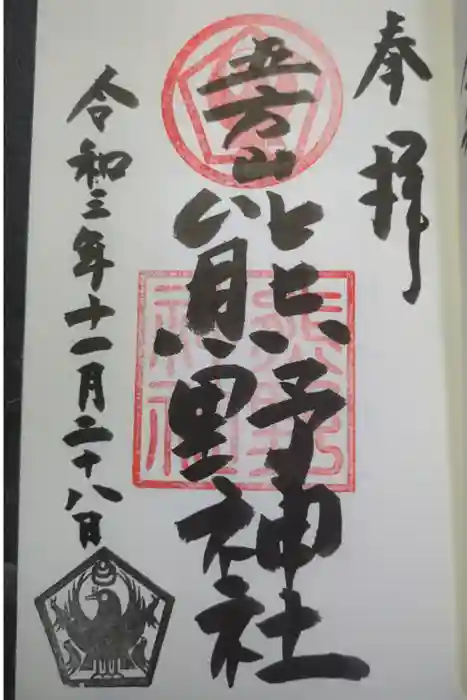 奉拝
五方山
熊野神社
熊野
神社
令和三年十一月二十八日